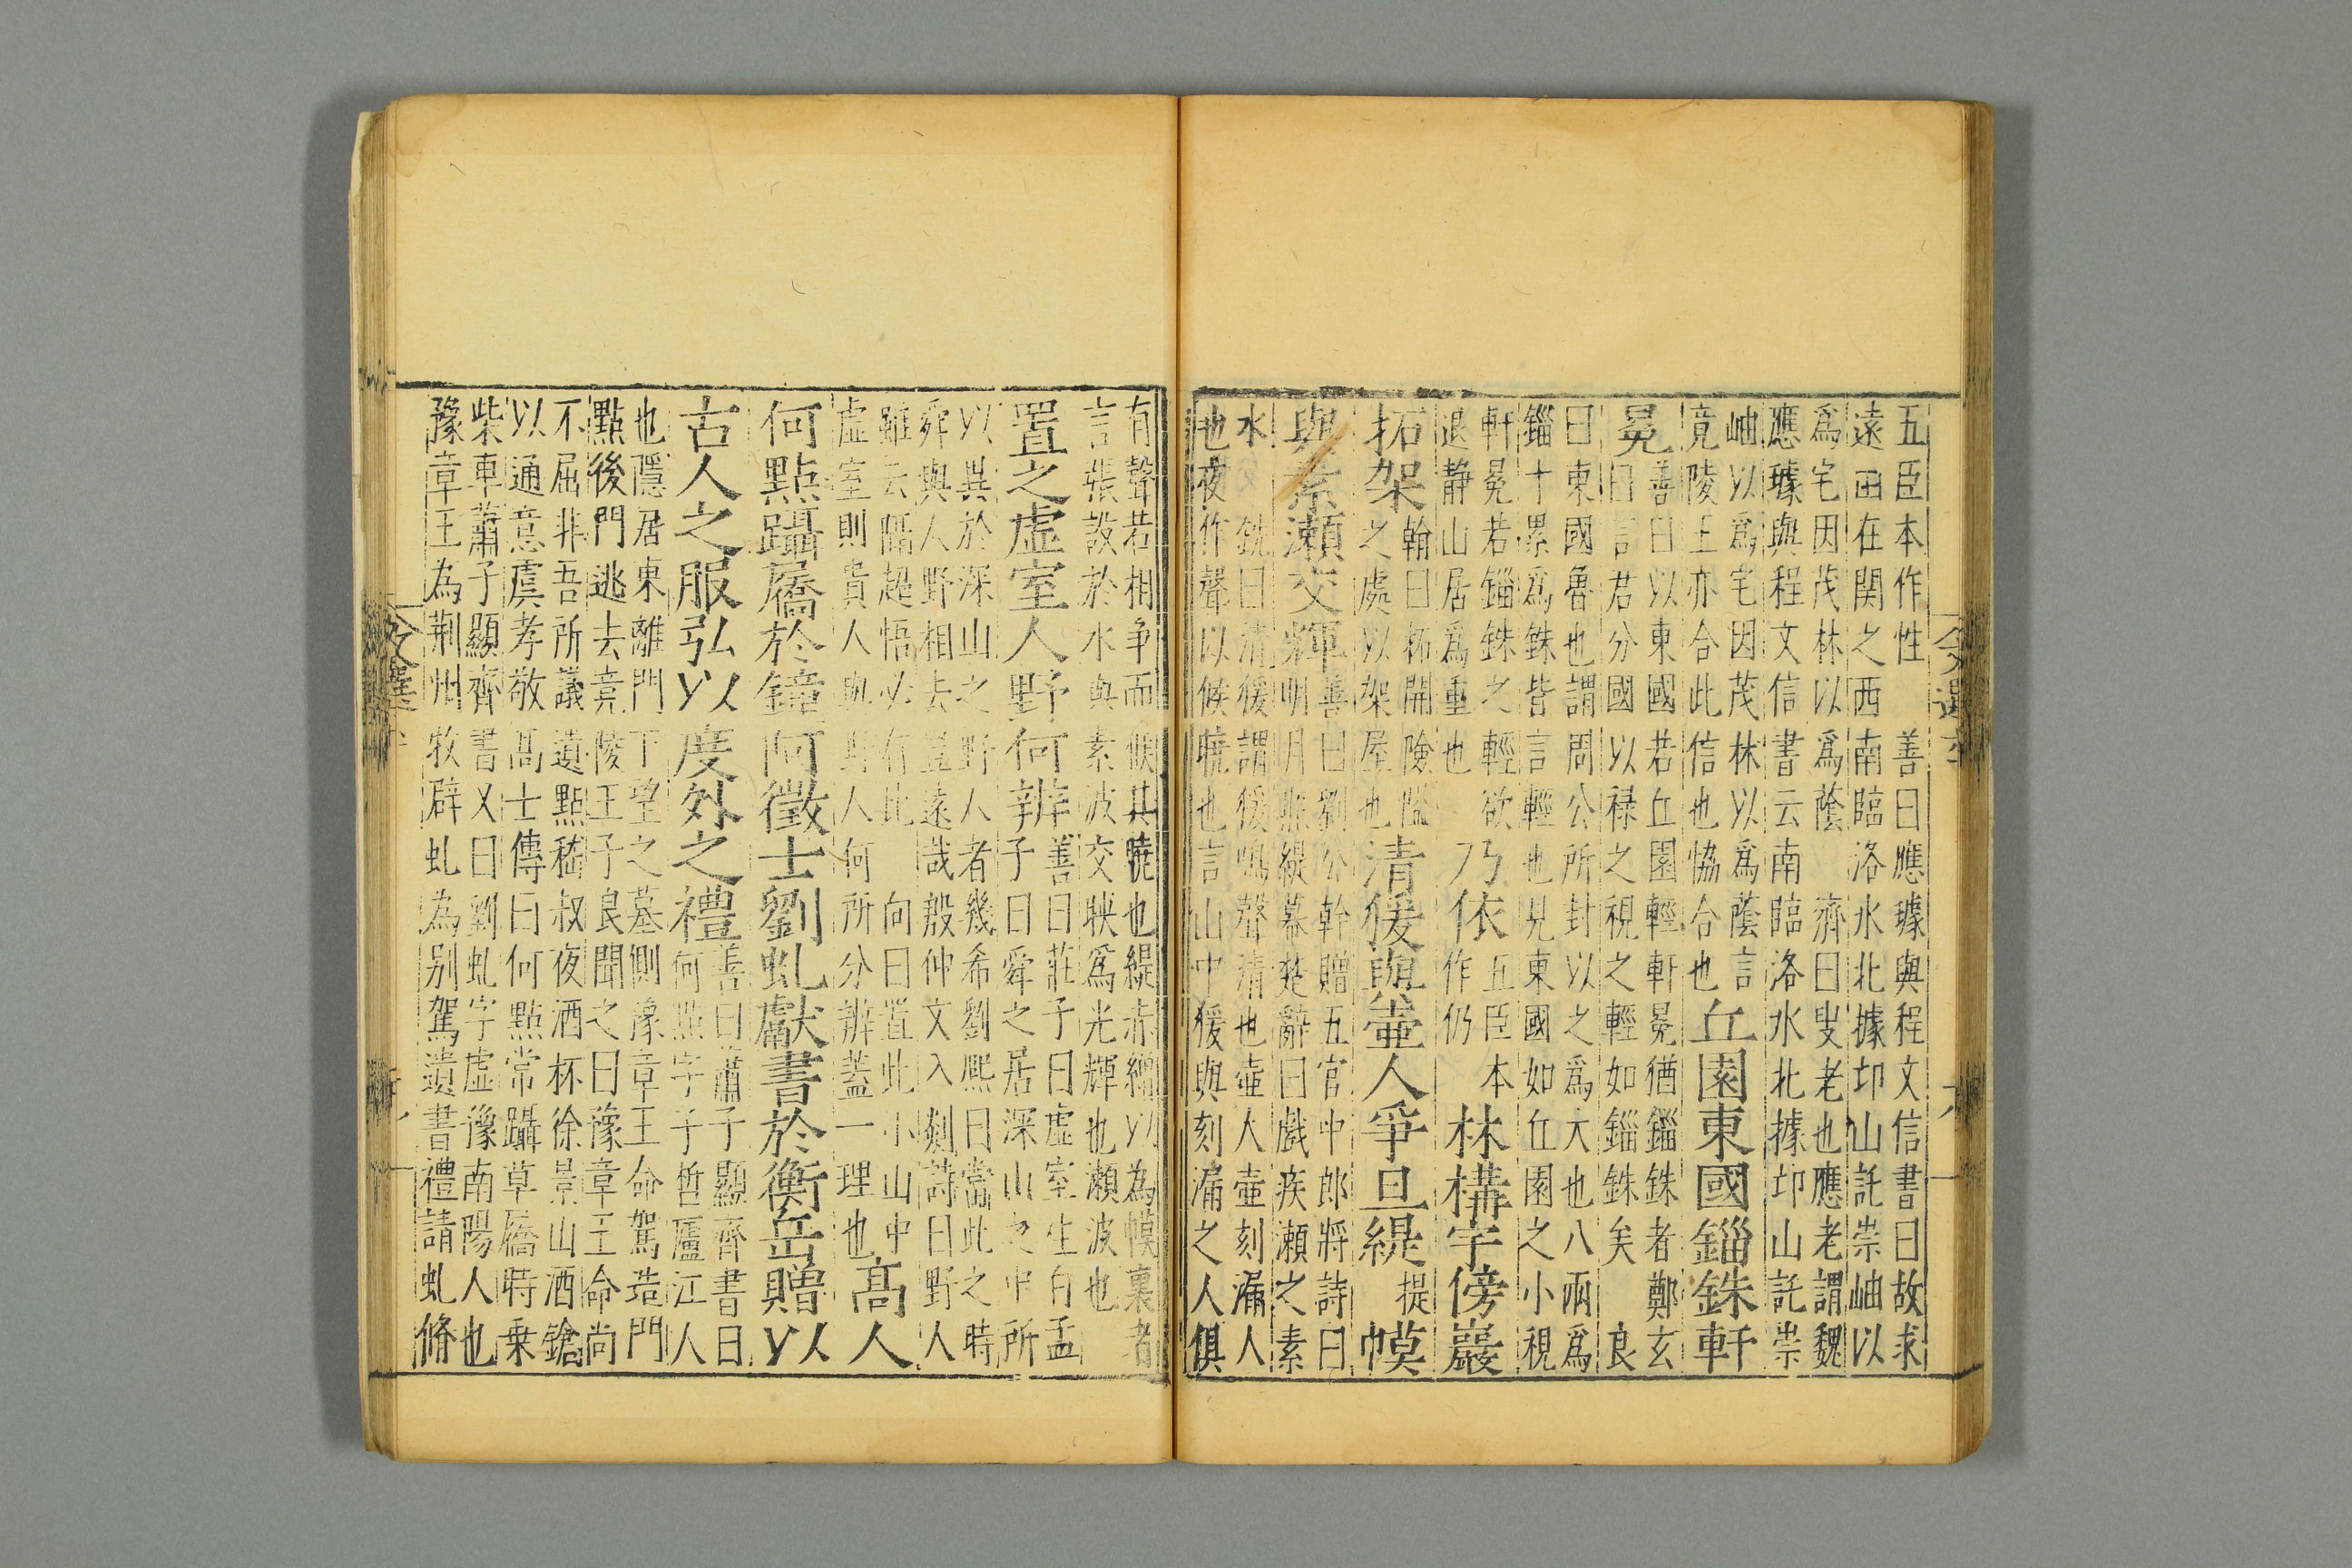 五臣本作性 善曰應璩與程文信書曰故求
遠田在關之西南臨洛水北據邙山託崇岫以
爲宅因茂林以爲蔭 濟曰叟老也應老謂魏
應璩與程文信書云南臨洛水北據邙山託崇
岫以爲宅因茂林以爲蔭言
竟陵王亦合此信也恊合也
丘園東國錙銖軒
冕
善曰以東國若丘園輕軒冕猶錙銖者鄭玄
曰言君分國以祿之視之輕如錙銖矣 良
曰東國魯也謂周公所封以之爲大也八兩爲
錙十累爲銖皆言輕也見東國如丘園之小視
軒冕若錙銖之輕欲
退静山居爲重也
乃依
五臣本
作仍
林構宇傍巖
拓架
翰曰拓開險隘
之處以架屋也
清猨與壺人爭旦緹
提
幙
與素瀬交輝
善曰劉公幹贈五官中郎將詩曰
明月照緹幕楚辭曰戲疾瀬之素
水 銑曰清猨謂猨鳴聲清也壺人壺刻漏人
也夜作聲以候曉也言山中猨與刻漏之人俱
有聲若相争而候其曉也緹赤繒以為幙裏者
言張設於水與素波交映爲光輝也瀬波也
置之虛室人野何辨
善曰莊子曰虛室生白孟
子曰舜之居深山之中所
以異於深山之野人者幾希劉熈曰當此之時
舜與人野相去豈遠哉殷仲文入剡詩曰野人
雖云隔超悟必有此 向曰置此小山中
虛室則貴人與野人何所分辨蓋一理也
高人
何點躡屩於鐘阿徵士劉虬獻書於衡岳贈以
古人之服弘以度外之禮
善曰蕭子顯齊書曰
何點字子晳廬江人
也隱居東離門下望之墓側豫章王命駕造門
點後門逃去竟陵王子良聞之曰豫章王命尚
不屈非吾所議遺點嵇叔夜酒杯徐景山酒鎗
以通意虞孝敬高士傳曰何點常躡草屩時乗
柴車蕭子顯齊書又曰劉虬字虛豫南陽人也
豫章王為荆州牧辟虬為别駕遺書禮請虬脩
文選